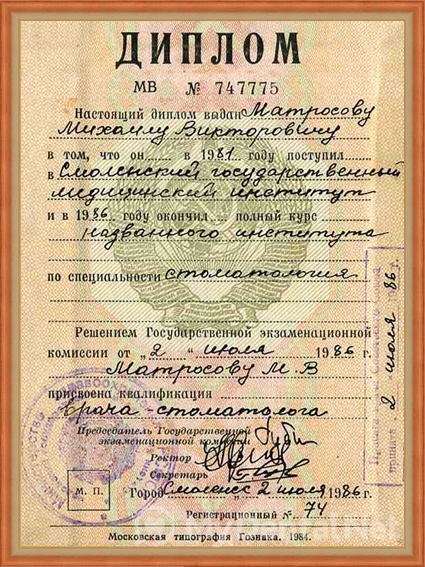 ДИПЛОМ
МВ № 747775
Настоящий диплом выдан Матросову
Михаилу Викторовичу
в том, что он в 1981 году поступил
в Смоленский государственный
медицинский институт
и в 1986 году окончил полный курс
названного института
по специальности стоматология
Решением Государственной экзаменационной
комиссии от „2“ июля 1986 г.
Матросову М. В
присвоена квалификация
врача-стоматолога
Председатель Государственной
экзаменационной комиссии
Ректор
Секретарь
М. П.
Город Смоленск 2 июля 1986 г.
Регистрационный № 74
Московская типография Гознака. 1984.
2 июля 1986 г.